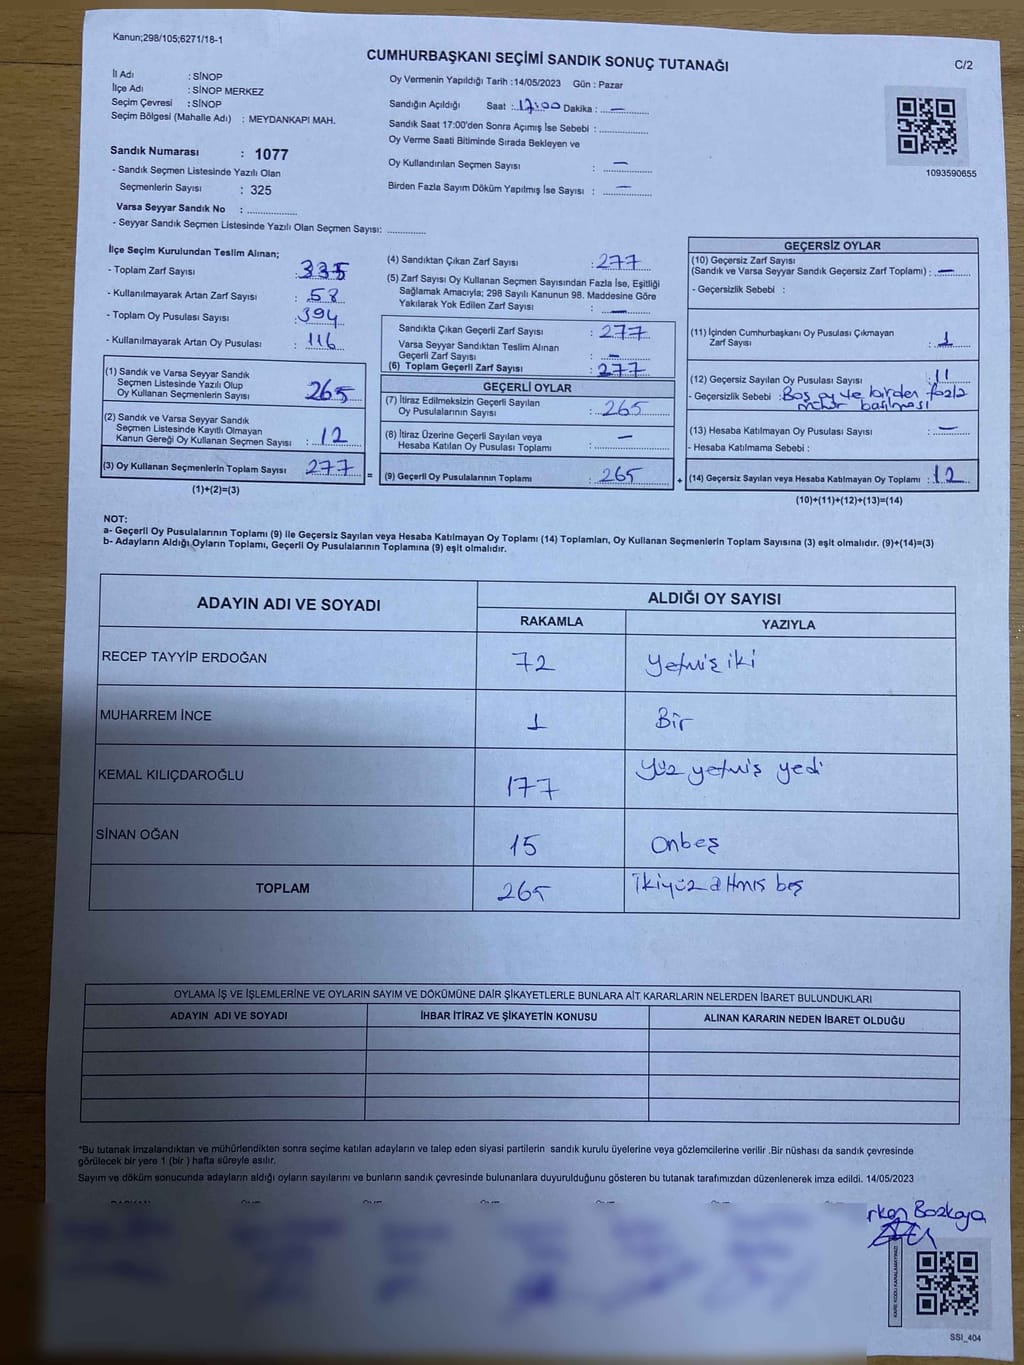 Kanun;298/105;6271/18-1
CUMHURBAŞKANI SEÇİMİ SANDIK SONUÇ TUTANAĞI
C/2
İl Adı : SİNOP
İlçe Adı : SİNOP MERKEZ
Seçim Çevresi : SİNOP
Seçim Bölgesi (Mahalle Adı) : MEYDANKAPI MAH.
Sandık Numarası : 1077
- Sandık Seçmen Listesinde Yazılı Olan
Seçmenlerin Sayısı : 325
Varsa Seyyar Sandık No :
- Seyyar Sandık Seçmen Listesinde Yazılı Olan Seçmen Sayısı:
Oy Vermenin Yapıldığı Tarih :14/05/2023 Gün : Pazar
Sandığın Açıldığı Saat : 17:00 Dakika : —
Sandık Saat 17:00'den Sonra Açımış İse Sebebi :
Oy Verme Saati Bitiminde Sırada Bekleyen ve
Oy Kullandırılan Seçmen Sayısı : —
Birden Fazla Sayım Döküm Yapılmış İse Sayısı : —
1093590655
İlçe Seçim Kurulundan Teslim Alınan;
- Toplam Zarf Sayısı : 335
- Kullanılmayarak Artan Zarf Sayısı : 58
- Toplam Oy Pusulası Sayısı : 394
- Kullanılmayarak Artan Oy Pusulası : 116
(1) Sandık ve Varsa Seyyar Sandık
Seçmen Listesinde Yazılı Olup
Oy Kullanan Seçmenlerin Sayısı : 265
(2) Sandık ve Varsa Seyyar Sandık
Seçmen Listesinde Kayıtlı Olmayan
Kanun Gereği Oy Kullanan Seçmen Sayısı : 12
(3) Oy Kullanan Seçmenlerin Toplam Sayısı : 277 =
(1)+(2)=(3)
(4) Sandıktan Çıkan Zarf Sayısı : 277
(5) Zarf Sayısı Oy Kullanan Seçmen Sayısından Fazla İse, Eşitliği
Sağlamak Amacıyla; 298 Sayılı Kanunun 98. Maddesine Göre
Yakılarak Yok Edilen Zarf Sayısı : —
Sandıkta Çıkan Geçerli Zarf Sayısı : 277
Varsa Seyyar Sandıktan Teslim Alınan
Geçerli Zarf Sayısı : —
(6) Toplam Geçerli Zarf Sayısı : 277
GEÇERLİ OYLAR
(7) İtiraz Edilmeksizin Geçerli Sayılan
Oy Pusulalarının Sayısı : 265
(8) İtiraz Üzerine Geçerli Sayılan veya
Hesaba Katılan Oy Pusulası Toplamı : —
(9) Geçerli Oy Pusulalarının Toplamı : 265 +
GEÇERSİZ OYLAR
(10) Geçersiz Zarf Sayısı
(Sandık ve Varsa Seyyar Sandık Geçersiz Zarf Toplamı) : —
- Geçersizlik Sebebi :
(11) İçinden Cumhurbaşkanı Oy Pusulası Çıkmayan
Zarf Sayısı : 1
(12) Geçersiz Sayılan Oy Pusulası Sayısı : 11
- Geçersizlik Sebebi : Boş oy ve birden fazla
mühür basılması
(13) Hesaba Katılmayan Oy Pusulası Sayısı : —
- Hesaba Katılmama Sebebi :
(14) Geçersiz Sayılan veya Hesaba Katılmayan Oy Toplamı : 12
(10)+(11)+(12)+(13)=(14)
NOT:
a- Geçerli Oy Pusulalarının Toplamı (9) ile Geçersiz Sayılan veya Hesaba Katılmayan Oy Toplamı (14) Toplamları, Oy Kullanan Seçmenlerin Toplam Sayısına (3) eşit olmalıdır. (9)+(14)=(3)
b- Adayların Aldığı Oyların Toplamı, Geçerli Oy Pusulalarının Toplamına (9) eşit olmalıdır.
ADAYIN ADI VE SOYADI
ALDIĞI OY SAYISI
RAKAMLA YAZIYLA
RECEP TAYYİP ERDOĞAN 72 Yetmiş iki
MUHARREM İNCE 1 Bir
KEMAL KILIÇDAROĞLU 177 Yüz yetmiş yedi
SİNAN OĞAN 15 Onbeş
TOPLAM 265 İkiyüz altmış beş
OYLAMA İŞ VE İŞLEMLERİNE VE OYLARIN SAYIM VE DÖKÜMÜNE DAİR ŞİKAYETLERLE BUNLARA AİT KARARLARIN NELERDEN İBARET BULUNDUKLARI
ADAYIN ADI VE SOYADI İHBAR İTİRAZ VE ŞİKAYETİN KONUSU ALINAN KARARIN NEDEN İBARET OLDUĞU
*Bu tutanak imzalandıktan ve mühürlendikten sonra seçime katılan adayların ve talep eden siyasi partilerin sandık kurulu üyelerine veya gözlemcilerine verilir .Bir nüshası da sandık çevresinde
görülecek bir yere 1 (bir ) hafta süreyle asılır.
Sayım ve döküm sonucunda adayların aldığı oyların sayılarını ve bunların sandık çevresinde bulunanlara duyurulduğunu gösteren bu tutanak tarafımızdan düzenlenerek imza edildi. 14/05/2023
rkan Bozkaya
KARE KODU KARALAMAYINIZ
SSI_404